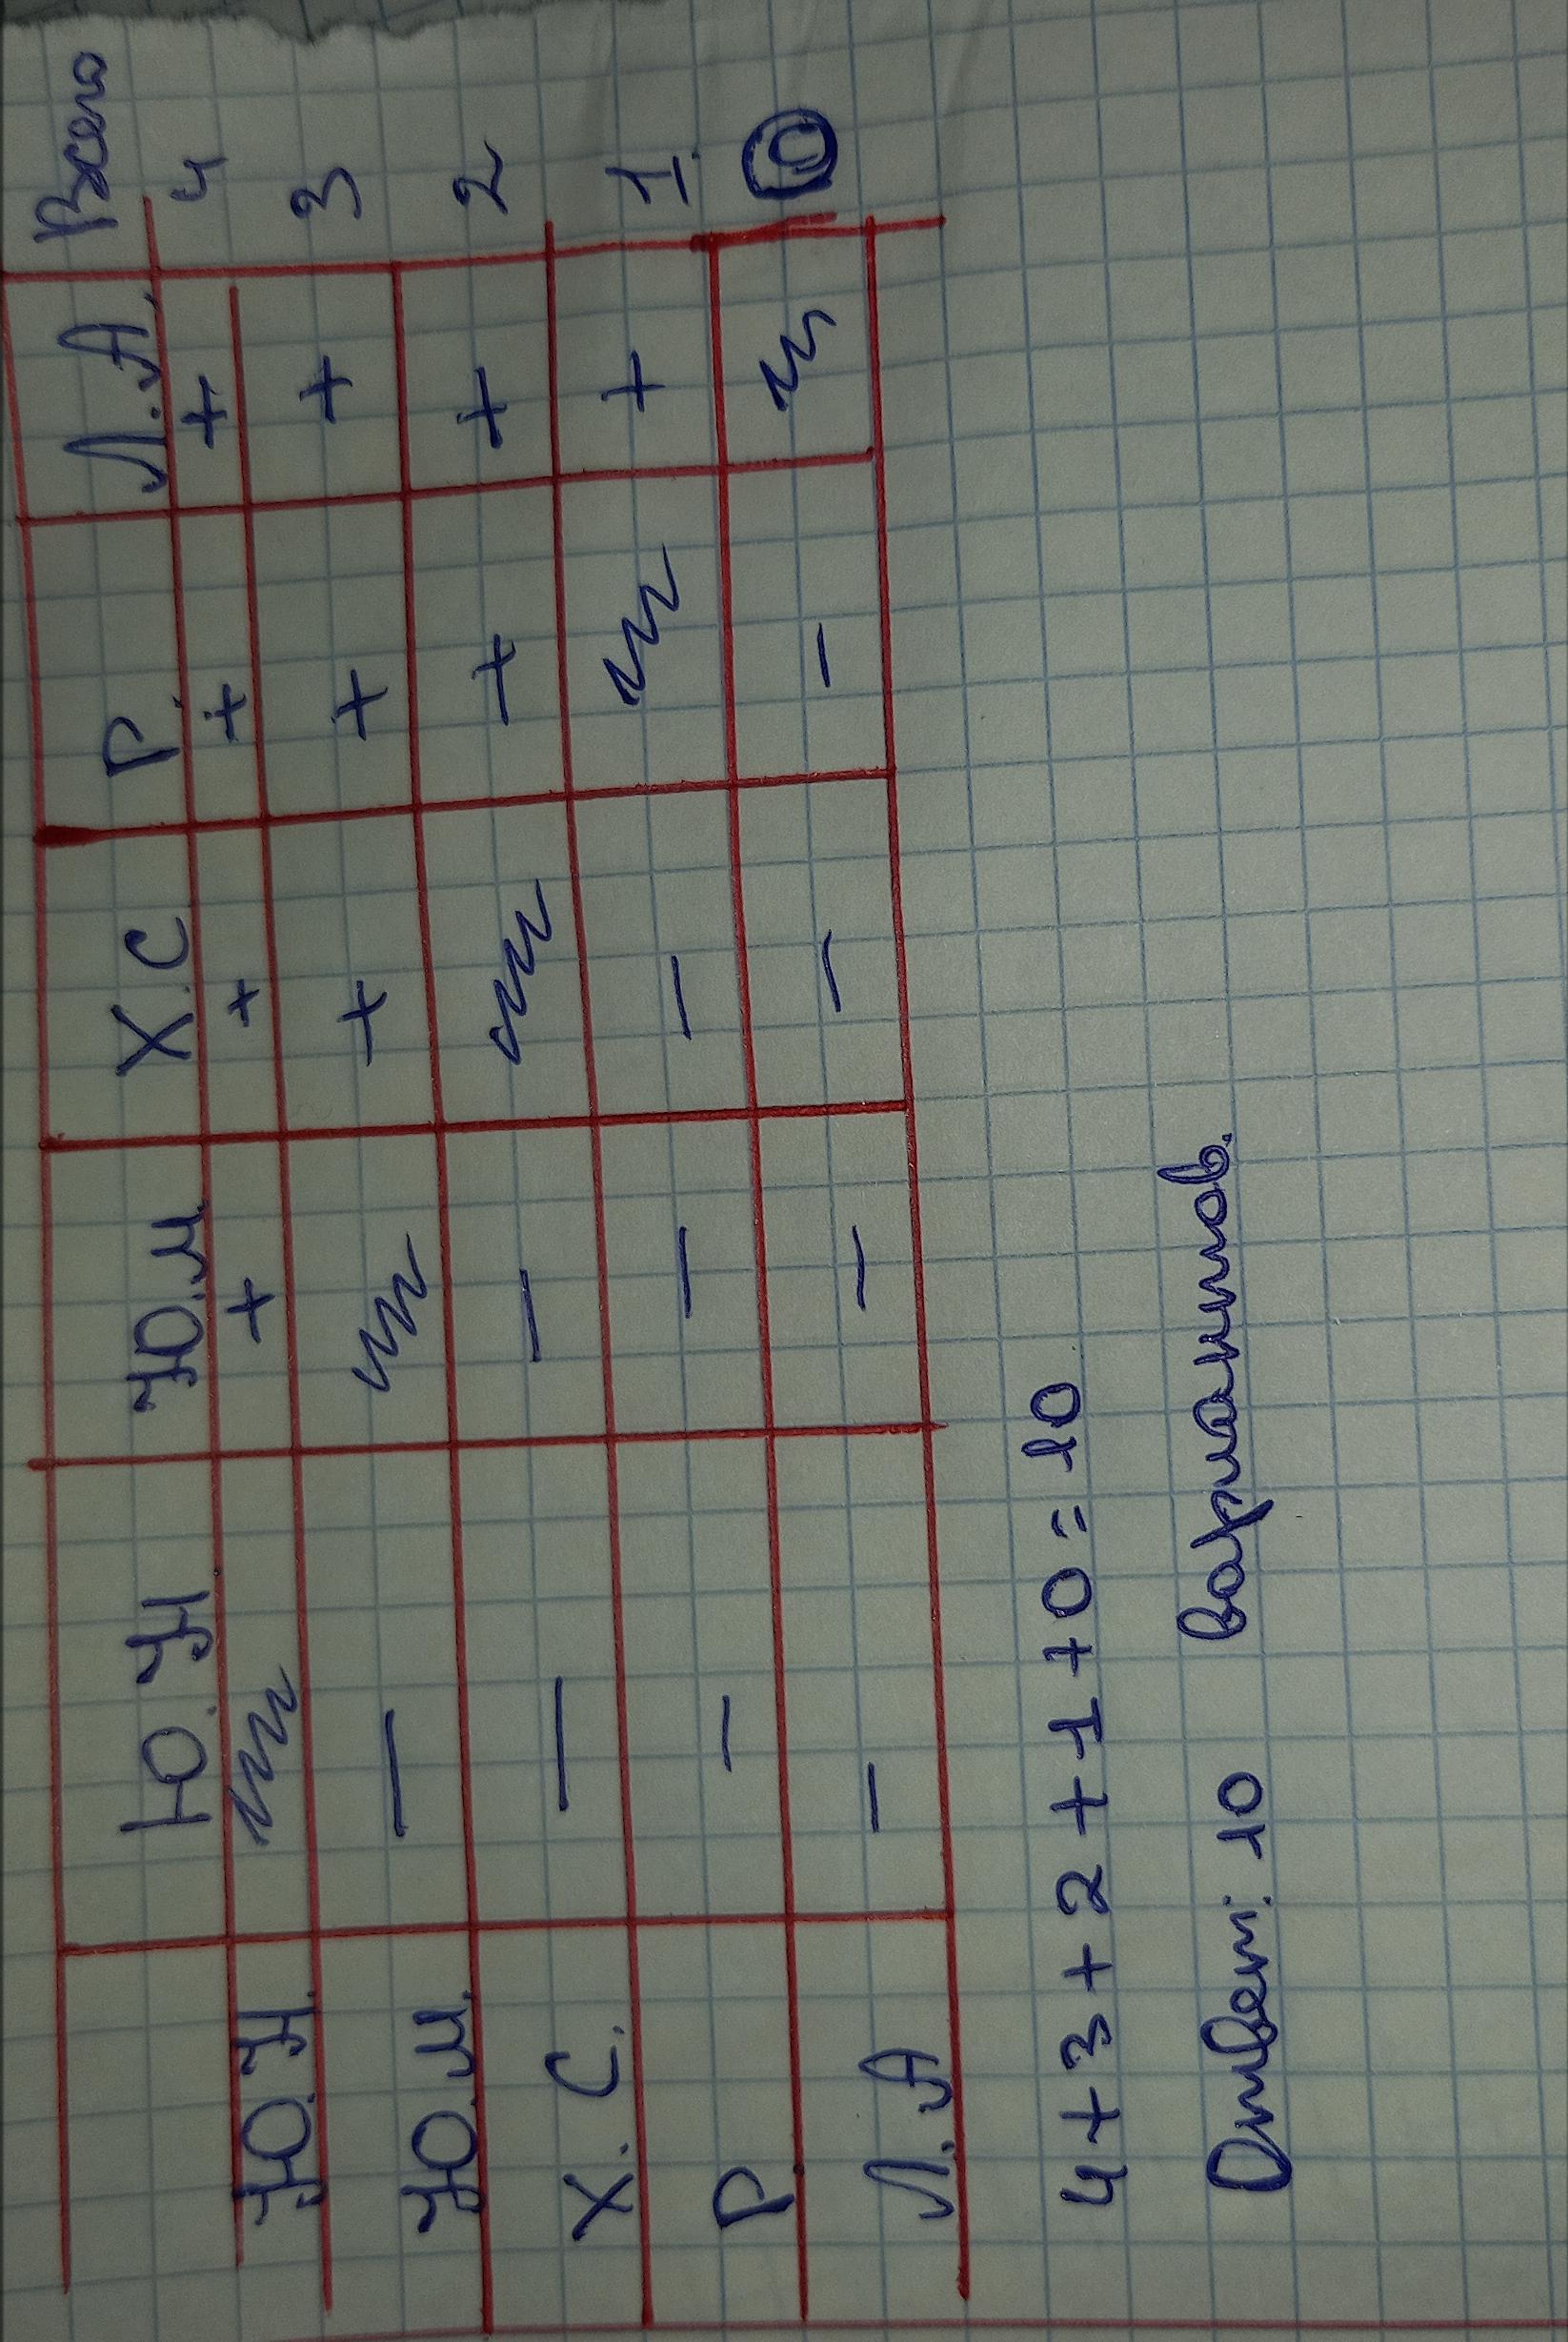 Ю.Н Ю.М Х.С Р. Л.А. Всего
Ю.Н. + + + + 4
Ю.М. — + + + 3
Х.С. — — + + 2
Р — — — + 1
Л.А — — — — 0
4+3+2+1+0=10
Ответ: 10 вариантов.